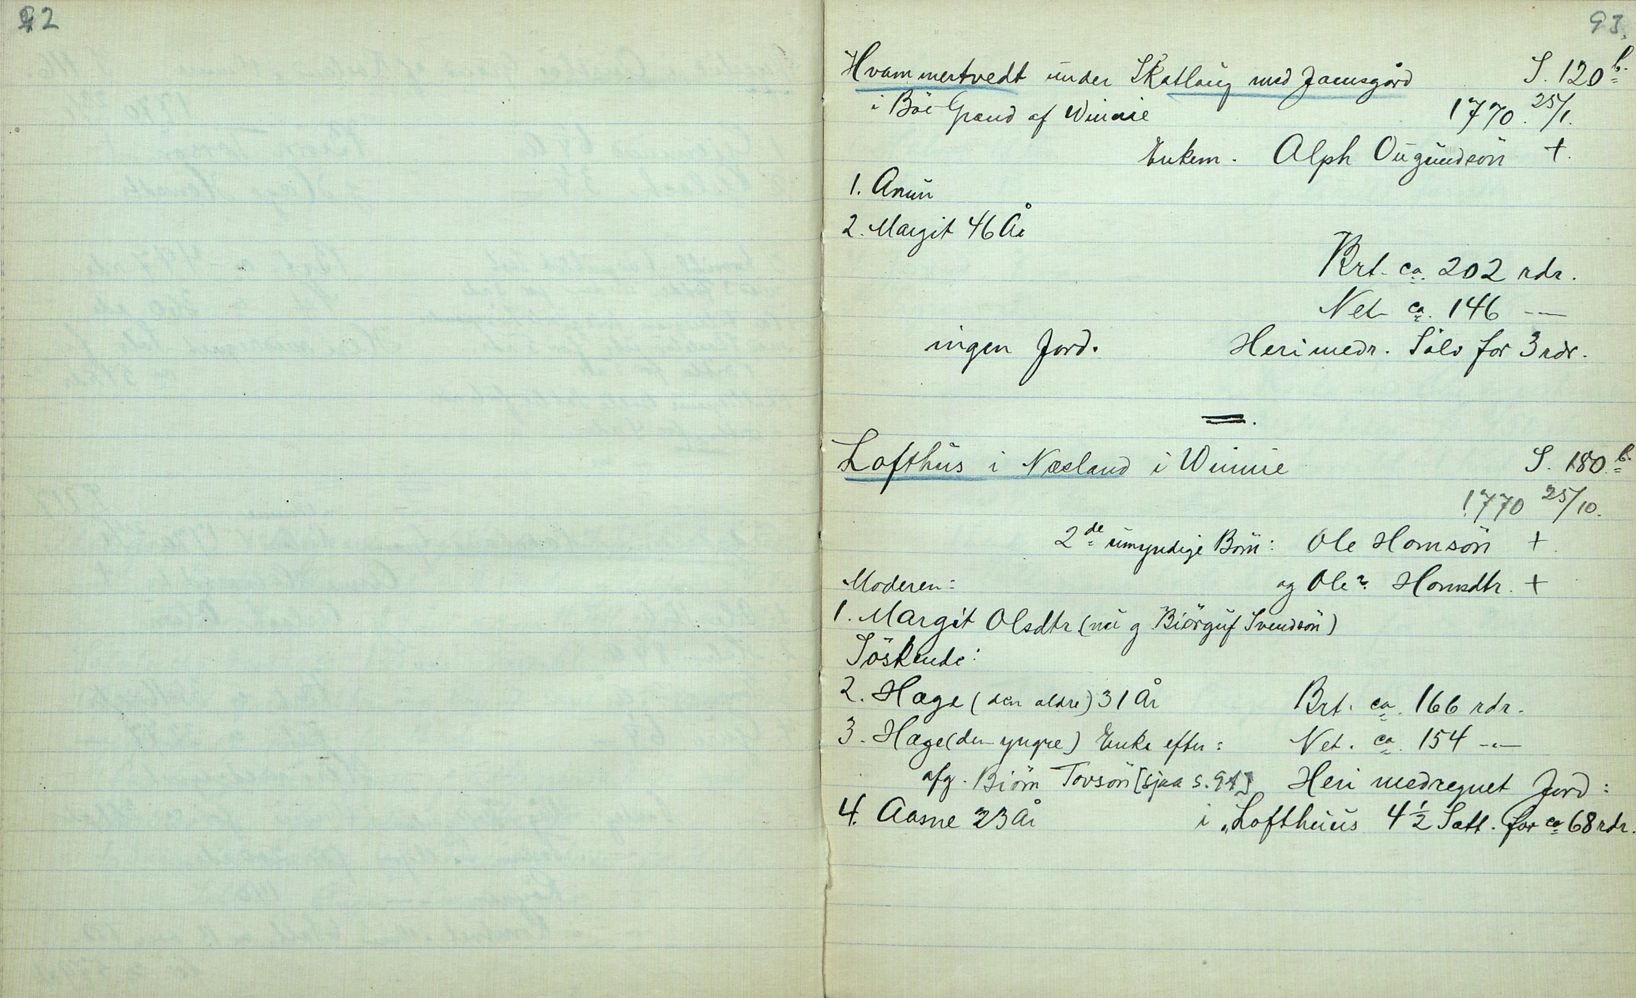 92
93.
Hvammertvedt under Skatlaug med Jamsgård S. 120 b.
i Böe Grænd af Winnie 1770 25/1.
Enkem. Alph Ougundsön +.
1. Anun
2. Margit 46 År
Brt. ca. 202 rdr.
Net ca. 146 —
ingen Jord. Heri medr. Sölv for 3 rdr.
Lofthus i Næsland i Winnie S. 180 b.
1770 25/10.
2de umyndige Börn: Ole Homsön +.
Moderen: og Ole? Homsdtr. +
1. Margit Olsdtr (nu g Biörguf Svendsön)
Söskende:
2. Hæge (den ældre) 31 År Brt. ca. 166 rdr.
3. Hæge (den yngre) Enke efter: Net. ca. 154 —
afg. Biörn Tovsön [sjaa s. 91] Heri medregnet Jord:
4. Aasne 23 År i "Lofthuus 4 1/2 Sætt. for ca 68 rdr.